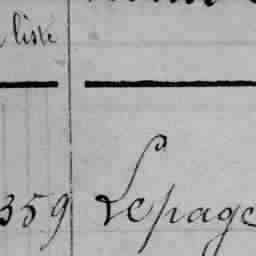 liste
359 Lepage